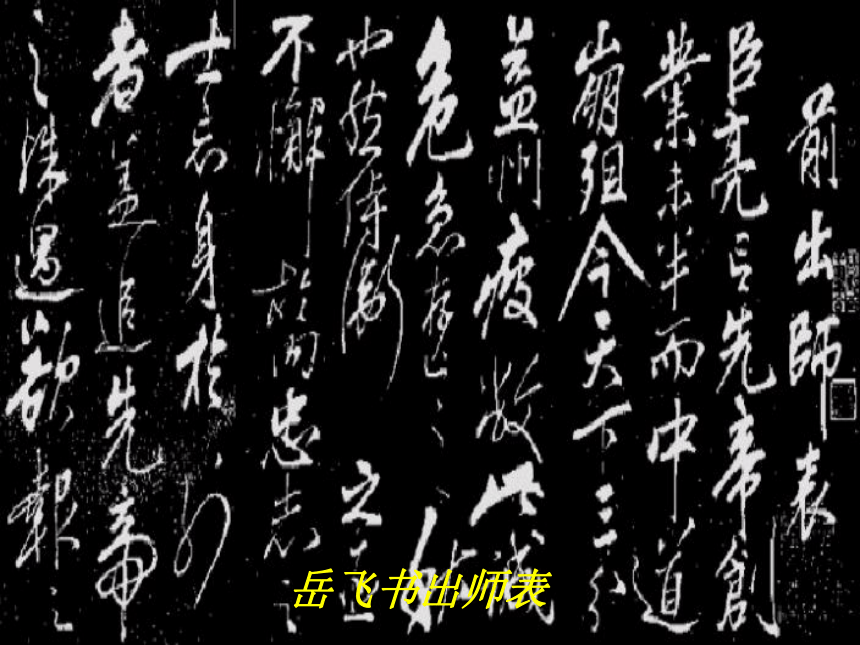 前出師表
臣亮言先帝創
業未半而中道
崩殂今天下三分
益州疲敝此誠
危急存亡之秋
也然侍衛之臣
不懈於内忠志之
士忘身於外
者蓋追先帝
之殊遇欲報之
岳飞书出师表